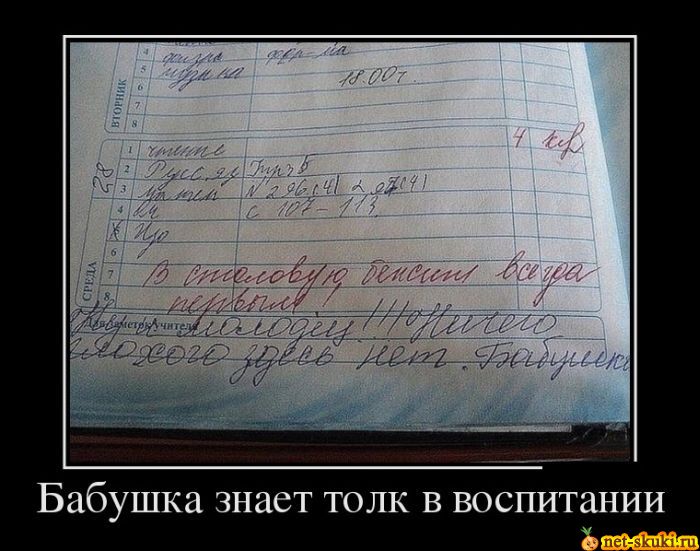 4 физра фор-ма
5 музыка 18.00г.
6
7
8
ВТОРНИК
28
1 чтение 4
2 Русс.яз Упр 5
3 N 2 96.(4)
4 с 107-113
Изо
6
7 В столовую бежит всегда
8 первым
СРЕДА
Ну и молодец!!! Ничего
Для заметок учителя
плохого здесь нет. Бабушка
Бабушка знает толк в воспитании
net-skuki.ru